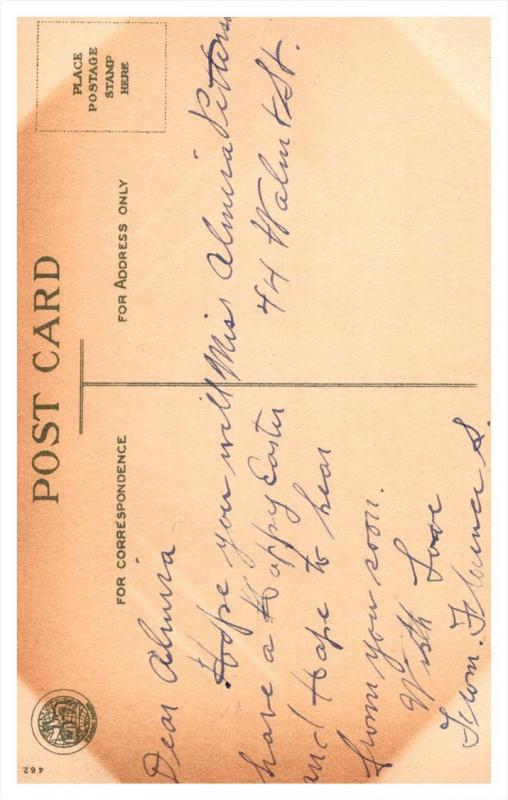 POST CARD
FOR CORRESPONDENCE
FOR ADDRESS ONLY
PLACE
POSTAGE
STAMP
HERE
Dear Almira
Hope you will
have a Happy Easter
and Hope to hear
from you soon.
With Love
From. Florence S.
Miss Almira
44 Walnut St.
462